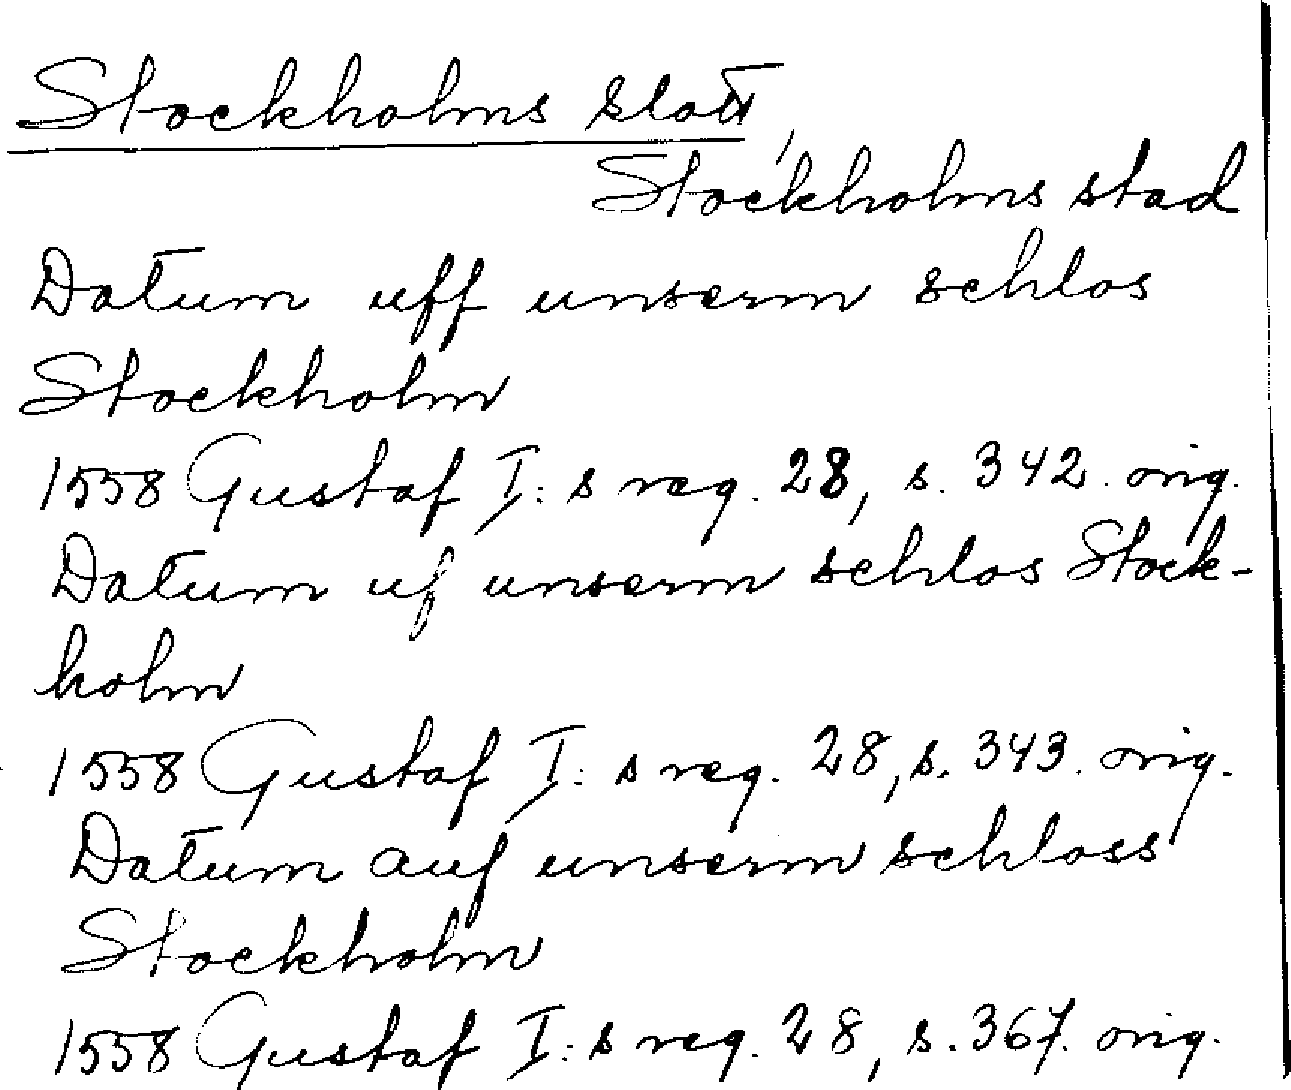 Stockholms slott,
Stockholms stad
Datum uff unserm schlos
Stockholm
1558 Gustaf I: s reg. 28, s. 342. orig.
Datum uf unserm schlos Stock-
holm
1558 Gustaf I: s reg. 28, s. 343. orig.
Datum auf unserm schloss
Stockholm
1558 Gustaf I: s reg. 28, s. 367. orig.